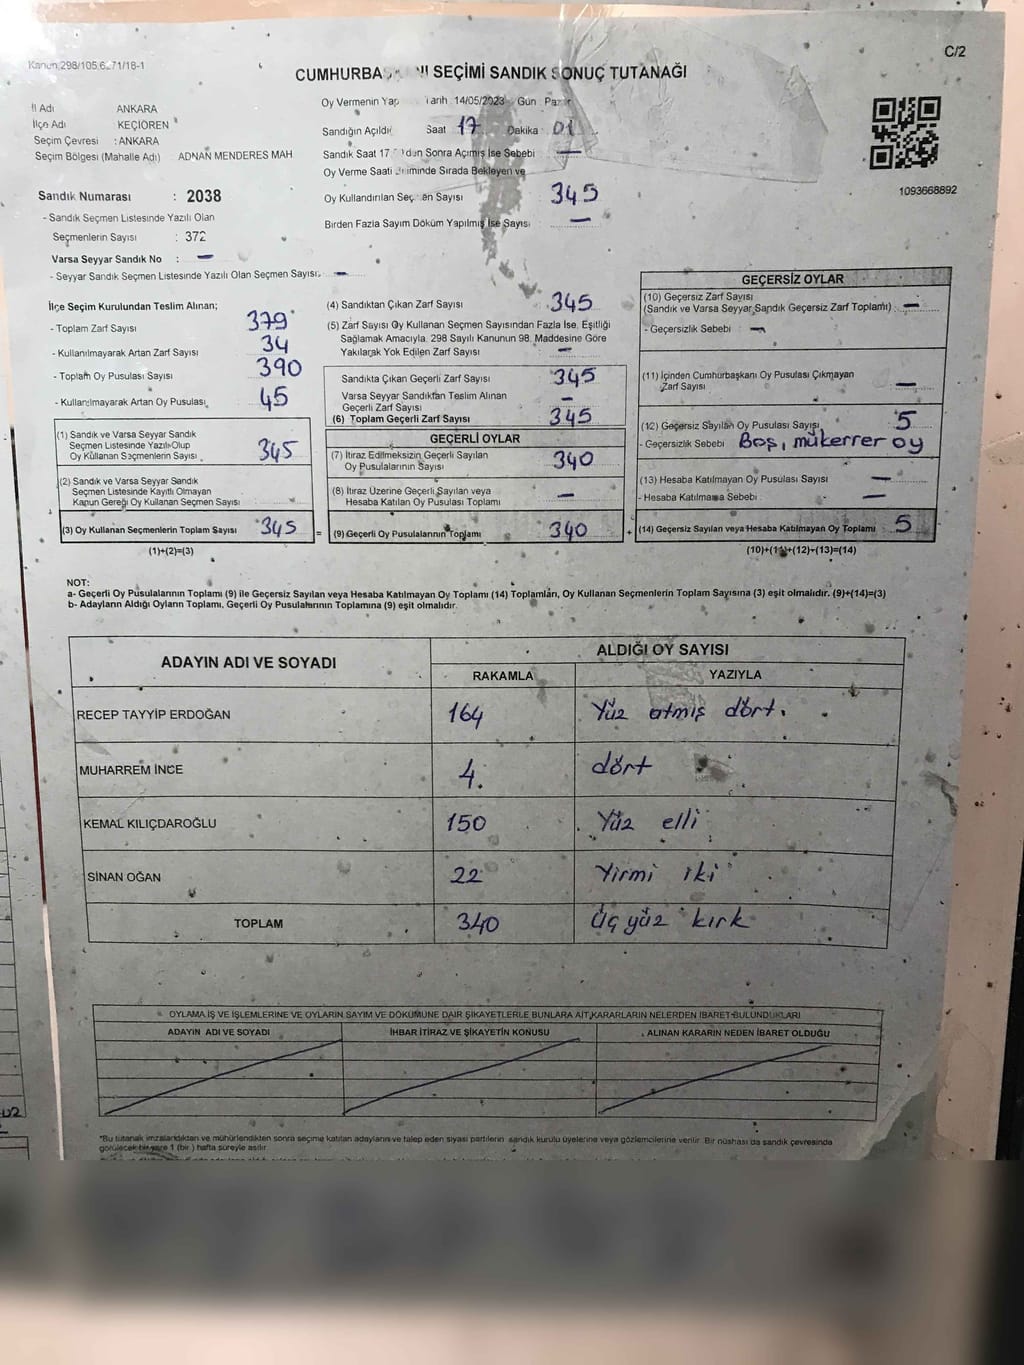 C/2
Kanun 298/105,6.,71/18-1
CUMHURBA SEÇİMİ SANDIK SONUÇ TUTANAĞI
İl Adı ANKARA
İlçe Adı KEÇİÖREN
Seçim Çevresi : ANKARA
Seçim Bölgesi (Mahalle Adı) ADNAN MENDERES MAH
Sandık Numarası : 2038
- Sandık Seçmen Listesinde Yazılı Olan
Seçmenlerin Sayısı : 372
Varsa Seyyar Sandık No : —
- Seyyar Sandık Seçmen Listesinde Yazılı Olan Seçmen Sayısı. —
Oy Vermenin Yap Tarih 14/05/2023 Gün Pazar
Sandığın Açıldı Saat 17 Dakika 01
Sandık Saat 17 'den Sonra Açımış İse Sebebi —
Oy Verme Saati Bitiminde Sırada Bekleyen ve
Oy Kullandırılan Seçmen Sayısı 345
Birden Fazla Sayım Döküm Yapılmış İse Sayısı —
1093668892
İlçe Seçim Kurulundan Teslim Alınan;
- Toplam Zarf Sayısı 379
- Kullanılmayarak Artan Zarf Sayısı 34
- Toplam Oy Pusulası Sayısı 390
- Kullanılmayarak Artan Oy Pusulası 45
(1) Sandık ve Varsa Seyyar Sandık
Seçmen Listesinde Yazılı Olup
Oy Kullanan Seçmenlerin Sayısı 345
(2) Sandık ve Varsa Seyyar Sandık
Seçmen Listesinde Kayıtlı Olmayan
Kanun Gereği Oy Kullanan Seçmen Sayısı
(3) Oy Kullanan Seçmenlerin Toplam Sayısı 345 =
(1)+(2)=(3)
(4) Sandıktan Çıkan Zarf Sayısı 345
(5) Zarf Sayısı Oy Kullanan Seçmen Sayısından Fazla İse, Eşitliği
Sağlamak Amacıyla, 298 Sayılı Kanunun 98. Maddesine Göre
Yakılarak Yok Edilen Zarf Sayısı —
Sandıkta Çıkan Geçerli Zarf Sayısı 345
Varsa Seyyar Sandıktan Teslim Alınan
Geçerli Zarf Sayısı —
(6) Toplam Geçerli Zarf Sayısı 345
GEÇERLİ OYLAR
(7) İtiraz Edilmeksizin Geçerli Sayılan
Oy Pusulalarının Sayısı 340
(8) İtiraz Üzerine Geçerli Sayılan veya
Hesaba Katılan Oy Pusulası Toplamı —
(9) Geçerli Oy Pusulalarının Toplamı 340 +
GEÇERSİZ OYLAR
(10) Geçersiz Zarf Sayısı
(Sandık ve Varsa Seyyar Sandık Geçersiz Zarf Toplamı) —
- Geçersizlik Sebebi : —
(11) İçinden Cumhurbaşkanı Oy Pusulası Çıkmayan
Zarf Sayısı —
(12) Geçersiz Sayılan Oy Pusulası Sayısı 5
- Geçersizlik Sebebi Boş, mükerrer oy
(13) Hesaba Katılmayan Oy Pusulası Sayısı —
- Hesaba Katılmama Sebebi : —
(14) Geçersiz Sayılan veya Hesaba Katılmayan Oy Toplamı 5
(10)+(11)+(12)+(13)=(14)
NOT:
a- Geçerli Oy Pusulalarının Toplamı (9) ile Geçersiz Sayılan veya Hesaba Katılmayan Oy Toplamı (14) Toplamları, Oy Kullanan Seçmenlerin Toplam Sayısına (3) eşit olmalıdır. (9)+(14)=(3)
b- Adayların Aldığı Oyların Toplamı, Geçerli Oy Pusulalarının Toplamına (9) eşit olmalıdır.
ADAYIN ADI VE SOYADI
ALDIĞI OY SAYISI
RAKAMLA YAZIYLA
RECEP TAYYİP ERDOĞAN 164 Yüz atmış dört.
MUHARREM İNCE 4. dört
KEMAL KILIÇDAROĞLU 150 Yüz elli
SİNAN OĞAN 22 Yirmi iki
TOPLAM 340 Üç yüz kırk
OYLAMA İŞ VE İŞLEMLERİNE VE OYLARIN SAYIM VE DÖKÜMÜNE DAİR ŞİKAYETLERLE BUNLARA AİT KARARLARIN NELERDEN İBARET BULUNDUKLARI
ADAYIN ADI VE SOYADI İHBAR İTİRAZ VE ŞİKAYETİN KONUSU ALINAN KARARIN NEDEN İBARET OLDUĞU
*Bu tutanak imzalandıktan ve mühürlendikten sonra seçime katılan adayların ve talep eden siyasi partilerin sandık kurulu üyelerine veya gözlemcilerine verilir. Bir nüshası da sandık çevresinde
görülecek bir yere 1 (bir) hafta süreyle asılır.